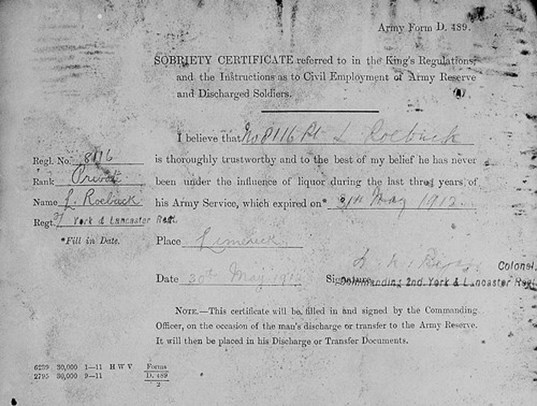 Army Form D. 489.
SOBRIETY CERTIFICATE referred to in the King's Regulations,
and the Instructions as to Civil Employment of Army Reserve
and Discharged Soldiers.
I believe that No 8116 Pt L Roebuck
Regl. No. 8116
is thoroughly trustworthy and to the best of my belief he has never
Rank Private
been under the influence of liquor during the last three years of
Name L. Roebuck
his Army Service, which expired on* 31st May 1912.
Regt. York & Lancaster Regt.
*Fill in Date.
Place Limerick
Colonel,
Date 30th May 1912 Signature
Commanding 2nd. York & Lancaster Regt.
NOTE.—This certificate will be filled in and signed by the Commanding
Officer, on the occasion of the man's discharge or transfer to the Army Reserve.
It will then be placed in his Discharge or Transfer Documents.
6239 30,000 1—11 H W V Forms
2795 30,000 9—11 D. 489
2